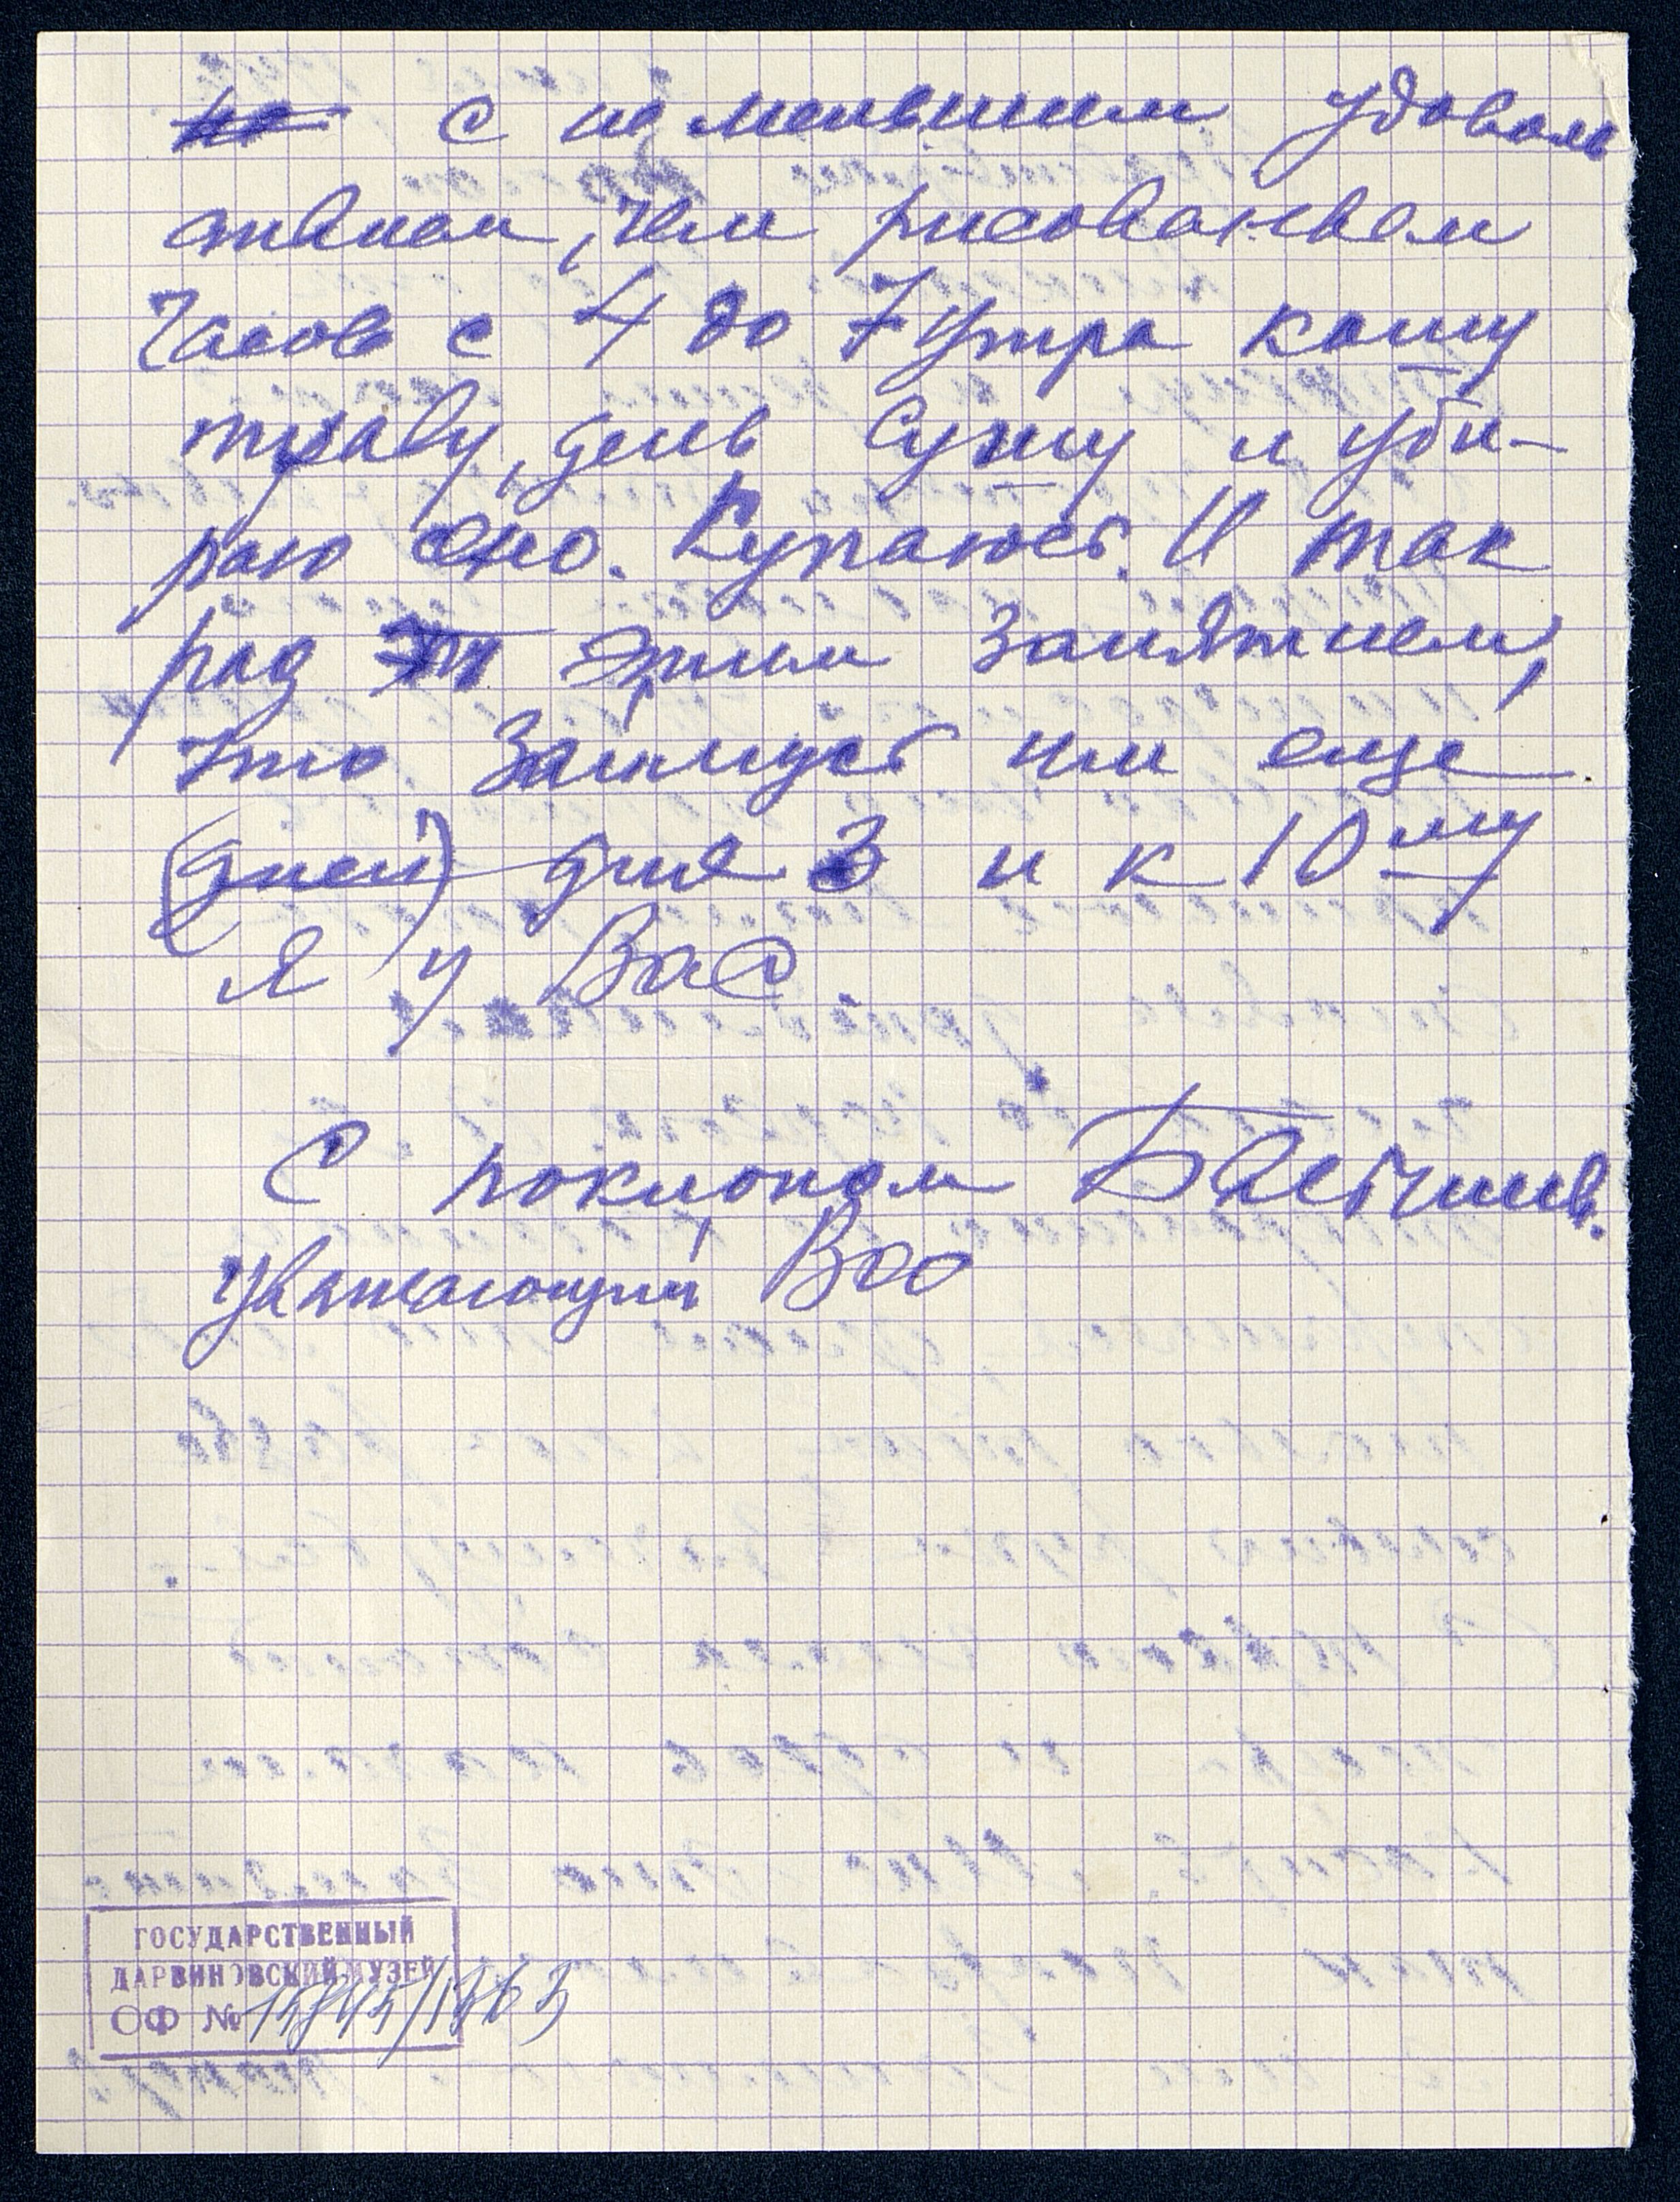 не с не меньшим удоволь
ствием, чем рисованьем
Часов с 4 до 7 утра кошу
траву, день сушу и уби-
раю сено. Купаюсь. И так
рад эти этим занятием,
что займусь им еще
(дней) дня 3 и к 10му
я у Вас.
С поклоном
уважающий Вас
ГОСУДАРСТВЕННЫЙ
ДАРВИНОВСКИЙ МУЗЕЙ
ОФ №